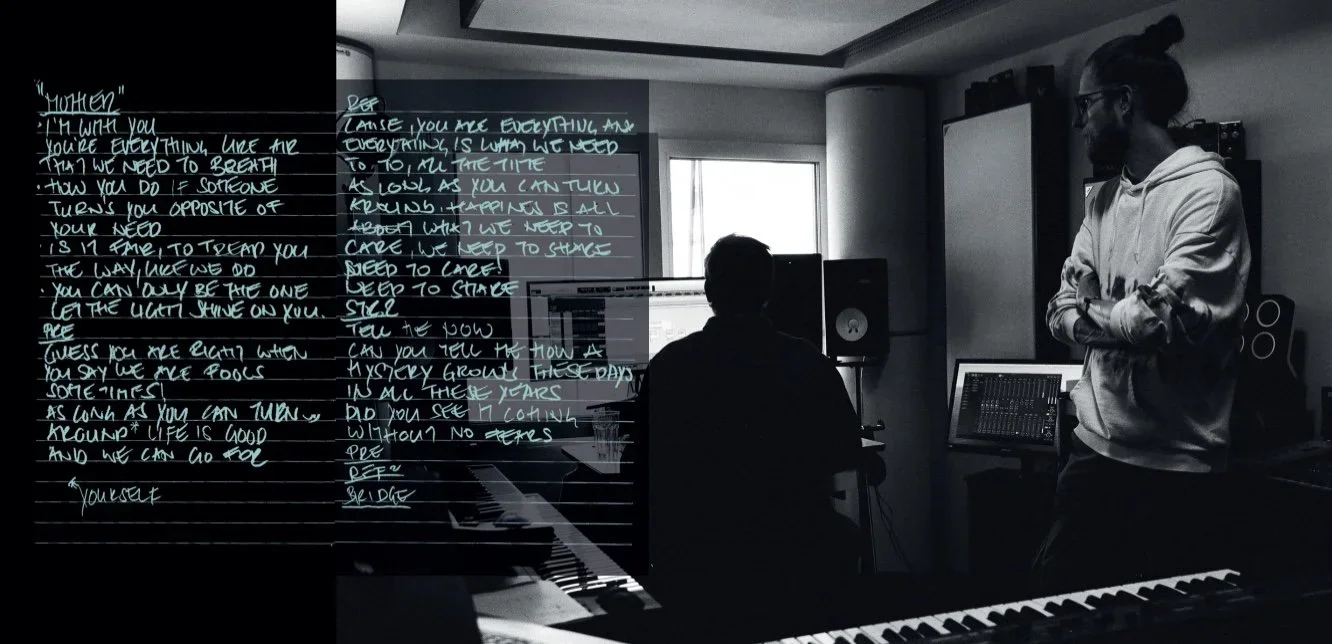 "MOTHER"
· I'M WITH YOU
YOU'RE EVERYTHING LIKE AIR
THAT WE NEED TO BREATH
· HOW YOU DO IF SOMEONE
TURNS YOU OPPOSITE OF
YOUR NEED
· IS IT FAIR, TO TREAD YOU
THE WAY, LIKE WE DO
· YOU CAN ONLY BE THE ONE
LET THE LIGHT SHINE ON YOU.
PRE
GUESS YOU ARE RIGHT WHEN
YOU SAY WE ARE FOOLS
SOMETIMES!
AS LONG AS YOU CAN TURN
AROUND* LIFE IS GOOD
AND WE CAN GO FOR
* YOURSELF
REF
CAUSE, YOU ARE EVERYTHING AND
EVERYTHING IS WHAT WE NEED
TO TO, ALL THE TIME
AS LONG AS YOU CAN TURN
AROUND. HAPPINES IS ALL
ABOUT WHAT WE NEED TO
CARE, WE NEED TO SHARE
NEED TO CARE!
NEED TO SHARE
STR. 2
TELL ME NOW
CAN YOU TELL ME HOW A
MYSTERY GROWS THESE DAYS
IN ALL THESE YEARS
DID YOU SEE IT COMING
WITHOUT NO FEARS
PRE
REF
BRIDGE